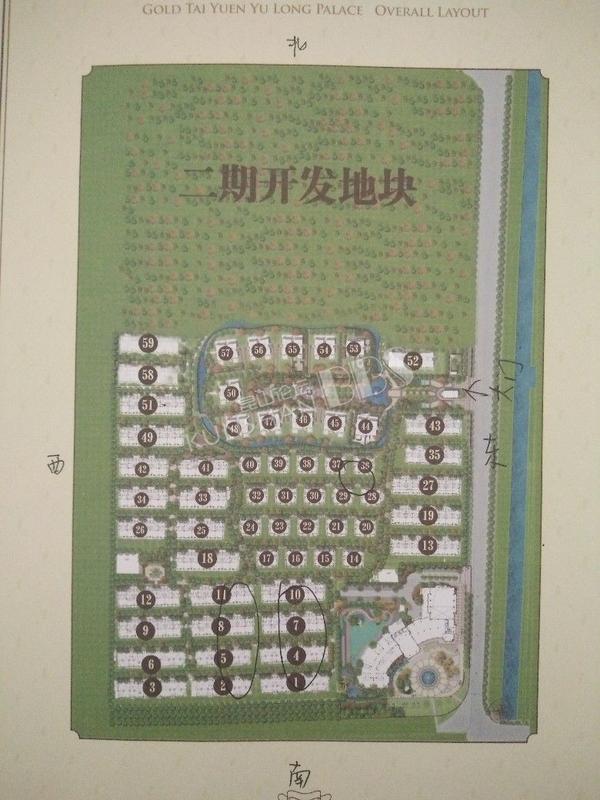 GOLD TAI YUEN YU LONG PALACE OVERALL LAYOUT
北
二期开发地块
59 57 56 55 54 53 52
58
51 50
大门
49 48 47 46 45 44 43
东
西
42 41 40 39 38 37 36 35
34 33 32 31 30 29 28 27
26 25 24 23 22 21 20 19
18 17 16 15 14 13
12 11 10
9 8 7
6 5 4
3 2 1
南
昆山论坛
KUNSHAN BBS